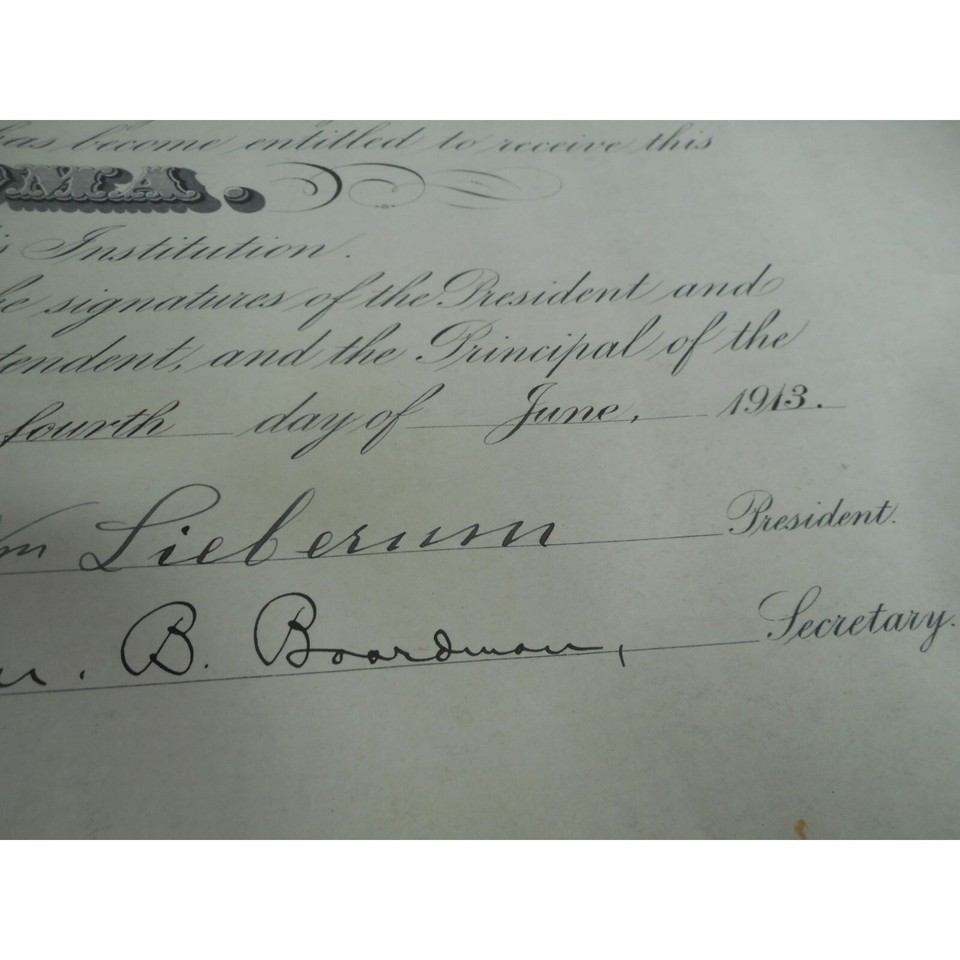 has become entitled to receive this
OMA.
is Institution.
he signatures of the President and
tendent, and the Principal of the
fourth day of June, 1913.
Wm Lieberum President.
B. Boardman, Secretary.